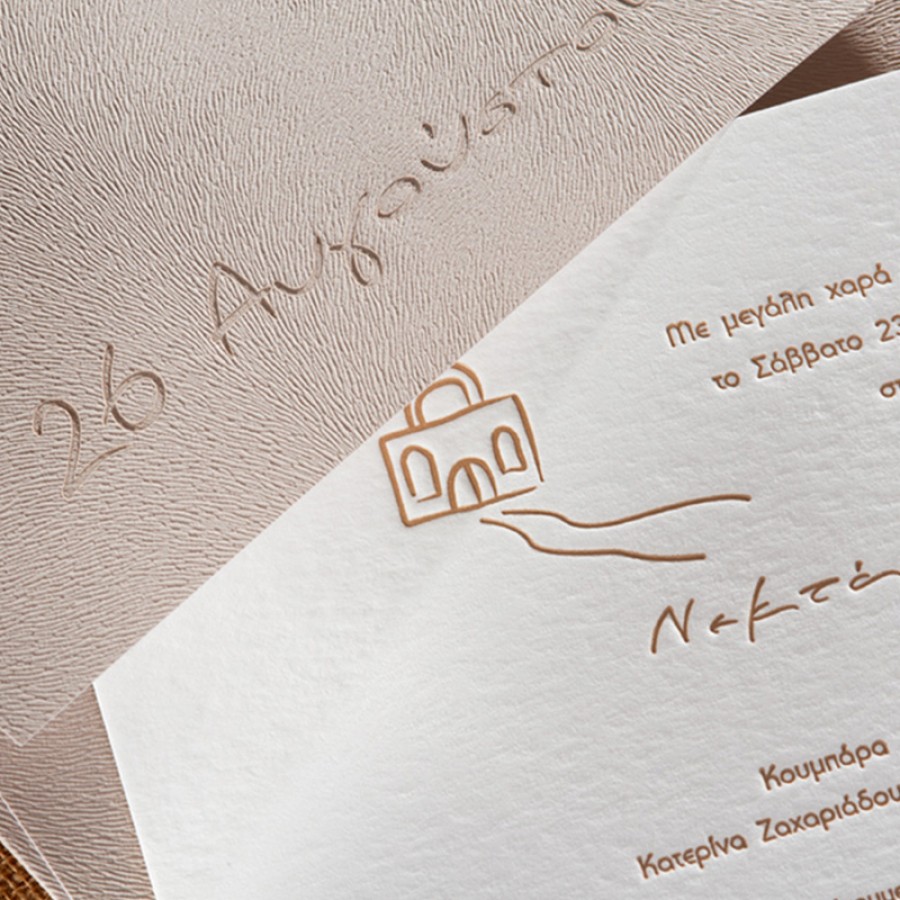 26 Αυγούστου
Με μεγάλη χαρά
το Σάββατο 23
Κουμπάρα
Κατερίνα Ζαχαριάδου